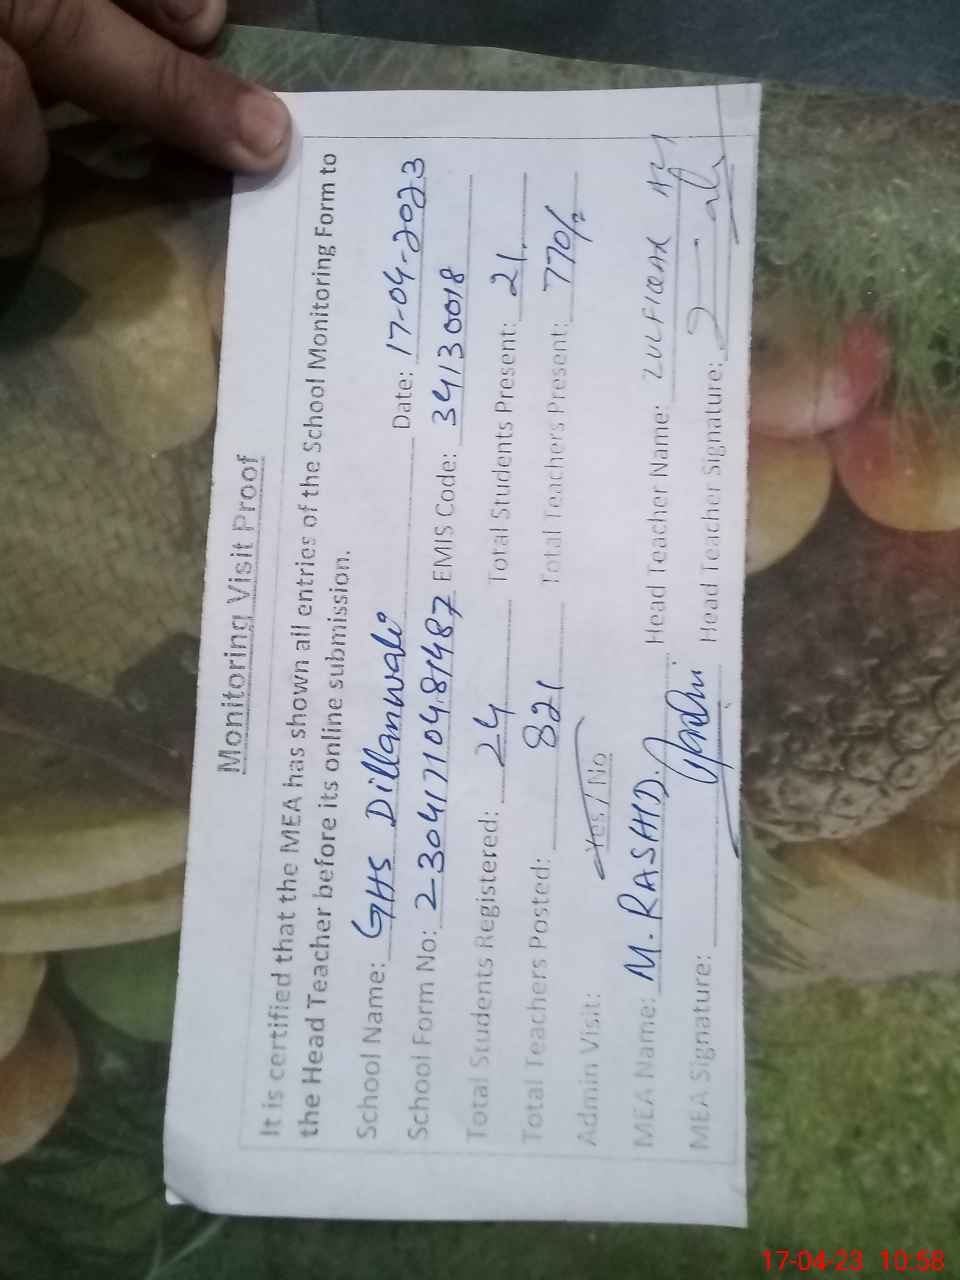 Monitoring Visit Proof
It is certified that the MEA has shown all entries of the School Monitoring Form to
the Head Teacher before its online submission.
School Name: GHS Dillanwali Date: 17-04-2023
School Form No: 2304171048 1487 EMIS Code: 34130018
Total Students Registered: 24 Total Students Present: 21
Total Teachers Posted: 821 Total Teachers Present: 770/
Admin Visit: Yes / No
MEA Name: M. RASHID. Head Teacher Name: ZULFIQAR ALI
MEA Signature: Head Teacher Signature:
17-04-23 10:58